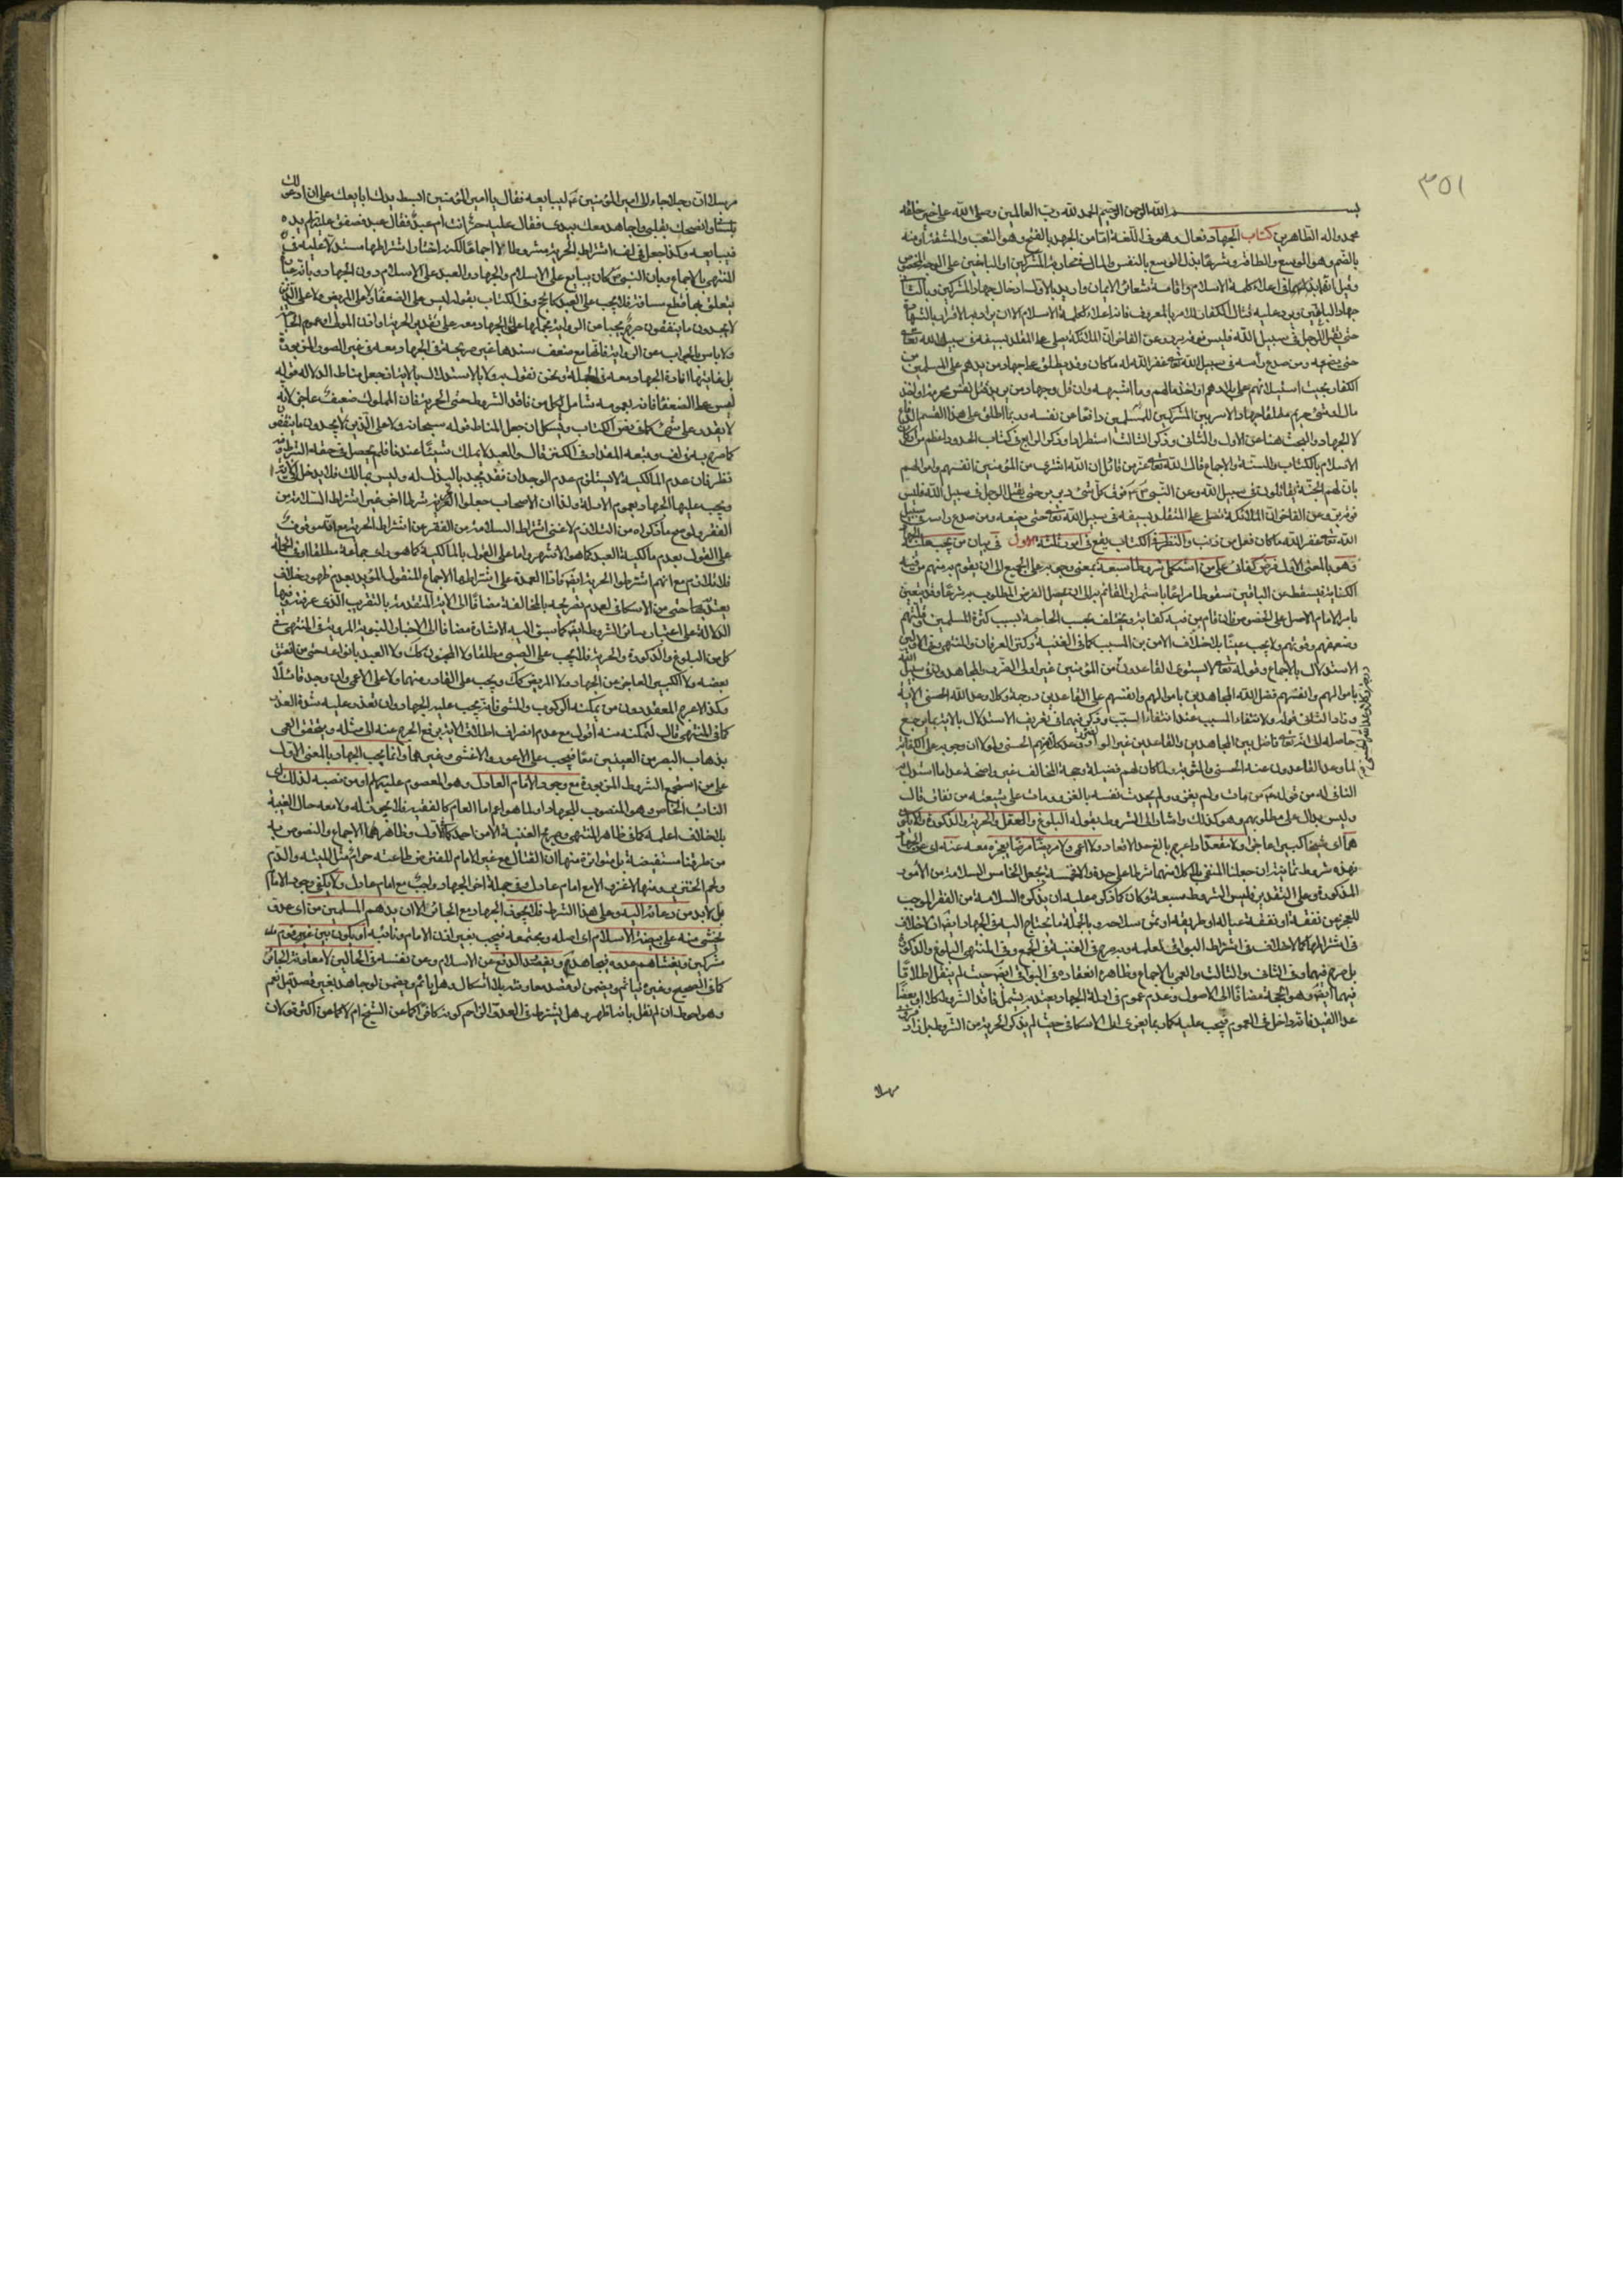 ٣٥١
بسم الله الرحمن الرحيم الحمد لله رب العالمين وصلى الله على خير خلقه
محمد واله الطاهرين كتاب الجهاد فعال وهو في اللغة اما من الجهد بالفتح وهو التعب والمشقة او منه
بالضم وهو الوسع والطاقة وشرعا بذل الوسع بالنفس والمال في محاربة المشركين او الباغين على الوجه المخصوص
وقيل انه بذلهما في اعلاء كلمة الاسلام واقامة شعائر الايمان واريد بالاول ادخال جهاد المشركين وبالثاني
جهاد الباغين ويرد عليه قتال الكفار للامر بالمعروف فانه اعلاء كلمة الاسلام الا ان يراد به الاقرار بالشهادتين
حتى يقتل الرجل في سبيل الله فليس فوقه بر وعن الفاخر ان الملائكة تصلى على المتقلد بسيفه في سبيل الله تعالى
حتى يضعه ومن صدع رأسه في سبيل الله تعالى غفر الله له ما كان وقد يطلق على جهاد من يدهم على المسلمين من
الكفار بحيث استيلائهم على بلادهم او اخذ مالهم وما اشبهه وان قل وجهاد من يريد قتل نفس محرمة او اخذ
مال او سبي حريم مطلقا وجهاد الاسير بين المشركين للمسلمين دافعا عن نفسه وربما اطلق على هذا القسم الدفاع
لا الجهاد والبحث هنا عن الاول والثاني وذكر الثالث استطرادا وذكر الرابع في كتاب الحدود
الاسلام بالكتاب والسنة والاجماع قال الله تعالى عز من قائل ان الله اشترى من المؤمنين انفسهم واموالهم
بان لهم الجنة يقاتلون في سبيل الله وعن النبي فوق كل ذي بر بر حتى يقتل الرجل في سبيل الله فليس
فوقه بر وعن الفاخر ان الملائكة تصلى على المتقلد بسيفه في سبيل الله تعالى حتى يضعه ومن صدع رأسه في سبيل
الله تعالى غفر الله ما كان قبل من ذنب والنظر في الكتاب يقع في امور ثلثة الاول في بيان من يجب عليه
وهو بالمعنى الاول فرض كفاية على من استكمل شروطا سبعة بمعنى وجوبه على الجميع الى ان يقوم به منهم من فيه
الكفاية فيسقط عن الباقين سقوطا مراعا باستمرار القائم به الى ان يحصل الغرض المطلوب به شرعا وقد يتعين
بامر الامام الاصل على الخصوص وان قام من فيه كفاية ويختلف بحسب الحاجة بسبب كثرة المسلمين وقلتهم
وضعفهم وقوتهم ولا يجب عينا بلا خلاف الا من ابن المسيب كما في الغنية وكنز العرفان والمنتهى وفي الاولين
الاستدلال بالاجماع وقوله تعالى لا يستوي القاعدون من المؤمنين غير اولى الضرر والمجاهدون في سبيل الله
باموالهم وانفسهم فضل الله المجاهدين باموالهم وانفسهم على القاعدين درجة وكلا وعد الله الحسنى الاية
وزاد الثاني قوله ولانتفاء المسبب عند انتفاء السبب وذكر فيهما في تقريب الاستدلال بالاية ما يرجع
حاصله الى انه تعالى فاضل بين المجاهدين والقاعدين غير اولى الضرر ووعد كلا منهم الحسنى ولولا ان وجوبه على الكفاية
لما وعد القاعدون عنه الحسنى والمثوبة ولما كان لهم فضيلة وحجة المخالف غير واضحة عدا ما استدل به
الثاني له من قوله من مات ولم يغز ولم يحدث نفسه بالغزو مات على شعبة من نفاق قال
وليس بدال على مطلوبهم وهو كذلك واشار الى الشروط بقوله البلوغ والعقل والحرية والذكورة وان لا يكون
هما اي شيخا كبيرا عاجزا ولا مقعدا اي اعرج بالغ حد الاقعاد ولا اعمى ولا مريضا مرضا يعجز معه عنه اي عن الجهاد
فهذه شروط ثمانية ان جعلنا المنفي بلا كلا منهما شرطا على حدة والا فخمسة بجعل الخامس السلامة من الأمور
المذكورة وعلى التقديرين فليس الشروط سبعة وكان كما ذكره عليه ان يذكره السلامة من الفقر الموجب
للعجز عن نفقته او نفقة عياله او طريقه او ثمن سلاحه وبالجملة ما يحتاج اليه في الجهاد
في اشتراطها كما لا خلاف في اشتراط البواقي اعلمه وبه صرح في الغنية في الجميع وفي المنتهى البلوغ والذكورة
بل صرح فيهما وفي الثاني والثالث والعمى بالاجماع وظاهره انعقاده في البواقي ايضا حيث لم ينقل اطلاقا
فيهما ايضا وهو الحجة مضافا الى الاصول وعدم عموم في ادلة الجهاد يعتد به يشمل فاقد الشروط كلا او بعضا
عدا القيد فانه داخل في العموم فيجب عليه كما ربما يعزى الى الاسكافي حيث لم يذكر الحرية من الشروط بل زاد
مرسلا ان رجلا جاء الى امير المؤمنين ليبايعه فقال يا امير المؤمنين ابسط يدك ابايعك على ان ادعو لك
بلساني وانصحك بقلبي واجاهد معك بيدي فقال عليه حر انت ام عبد فقال عبد فصفق يده
فبايعه وكذا جعل في لف اشتراط الحرية مشروطا لا اجماعا لكنه اختار اشتراطها مستدلا عليه في
المنتهى بالاجماع وبان النبي كان يبايع على الاسلام والجهاد والعبد على الاسلام دون الجهاد وبانه
يتعلق بها قطع مسافة فلا يجب على العبد كالحج وفي الكتاب بقوله ليس على الضعفاء ولا على المرضى ولا على الذين
لا يجدون ما ينفقون حرج مجيبا عن الرواية بحملها على الجهاد معه على تقدير الحرية او اذن المولى او عموم الحاجة
ولا باس بالجواب عن الرواية فانها مع ضعف سندها غير صريحة في الجهاد معه في غير الصور المزبورة
بل غايتها افادة الجهاد معه في الجملة ونحن نقول به ولا بالاستدلال بالاية ان جعل مناط الدلالة قوله
ليس على الضعفاء فانه بعمومه شامل لكل من فاقد الشروط حتى الحرية فان المملوك ضعيف عاجز لانه
لا يقدر على شيء كما في نص الكتاب ويشكل ان جعل المناط قوله سبحانه ولا على الذين لا يجدون ما ينفقون
كما صرح به في لف وتبعه المقداد في الكنز قال والعبد لا يملك شيئا عندنا فلم يحصل في حقه الشرط وفيه
نظر فان عدم المالكية لا يستلزم عدم الوجدان فقد يجد بالبذل له وليس بمالك فلا يدخل في الاية
ويجب عليها الجهاد بعموم الادلة ولذا ان الاصحاب جعلوا الحرية شرطا اخر غير اشتراط السلامة من
الفقر ولو صح ما ذكراه من التلازم لاغنى اشتراط السلامة من الفقر عن اشتراط الحرية مع انه موقوف
على القول بعدم مالكية العبد كما هو الاشهر واما على القول بالمالكية كما هو راى جماعة مطلقا او في الجملة
فلا تلازم مع انهم اشترطوا الحرية ايضا فاذا العمدة على اشتراطها الاجماع المنقول المؤيد بعدم ظهور خلاف
يعتد به حتى من الاسكافي لعدم تصريحه بالمخالفة مضافا الى الاية المتقدمة بالتقريب الذي عرفته وفيها
الدلالة على اعتبار سائر الشروط ايضا كما سبق اليه الاشارة مضافا الى الاخبار النبوية المروية في المنتهى في
كل من البلوغ والذكورة والحرية فلا يجب على الصبي مطلقا ولا المجنون كك ولا العبد بانواعه حتى من انعتق
بعضه ولا الكبير العاجز عن الجهاد ولا المريض كك ويجب على القادر منهما ولا على الاعمى وان وجد قائدا
وكذا الاعرج المقعد دون من يمكنه الركوب والمشي فانه يجب عليه الجهاد وان تعذر عليه شدة العدو
كما في المنتهى قال لتمكنه منه أقول مع عدم انصراف اطلاق الاية برفع الحرج عنه الى مثله ويتحقق العمى
بذهاب البصر من العينين معا فيجب على الاعور والاعشى وغيرهما وانما يجب الجهاد بالمعنى الاول
على من استجمع الشروط المزبورة مع وجود الامام العادل وهو المعصوم عليه او من نصبه لذلك اي
النائب الخاص وهو المنصوب للجهاد او لما هو اعم اما العام كالفقيه فلا يجوز له ولا معه حال الغيبة
بلا خلاف اعلمه كما في ظاهر المنتهى وصريح الغنية الا من احمد كما في الاول وظاهرهما الاجماع والنصوص به
من طرقنا مستفيضة بل متواترة منها ان القتال مع غير الامام المفترض طاعته حرام مثل الميتة والدم
ولحم الخنزير ومنها لا غزو الا مع امام عادل وفي جملة اخر الجهاد واجب مع امام عادل ولا يكفي وجود الامام
بل لا بد من دعائه اليه وعلى هذا الشرط فلا يجوز الجهاد مع الجائر الا ان يدهم المسلمين من اي عدو
يخشى منه على بيضة الاسلام اي اصله ومجتمعه فيجب بغير اذن الامام ونائبه او يكون بين غير قوم
مشركين ويغشاهم عدو فيجاهد ويقصد الدفع عن الاسلام وعن نفسه في الحالين لا معاونة الجائر
كما في الصحيح وغيره فياثم ويضمن لو قصد معاونته بلا اشكال وهل ياثم ويضمن لو جاهد بغير قصد قيل نعم
وهو احوط ان لم نقل بانه اظهر وهل يشترط في العدو الزاحم كونه كافرا كما عن الشيخ ام لا كما عن اكثر قولان